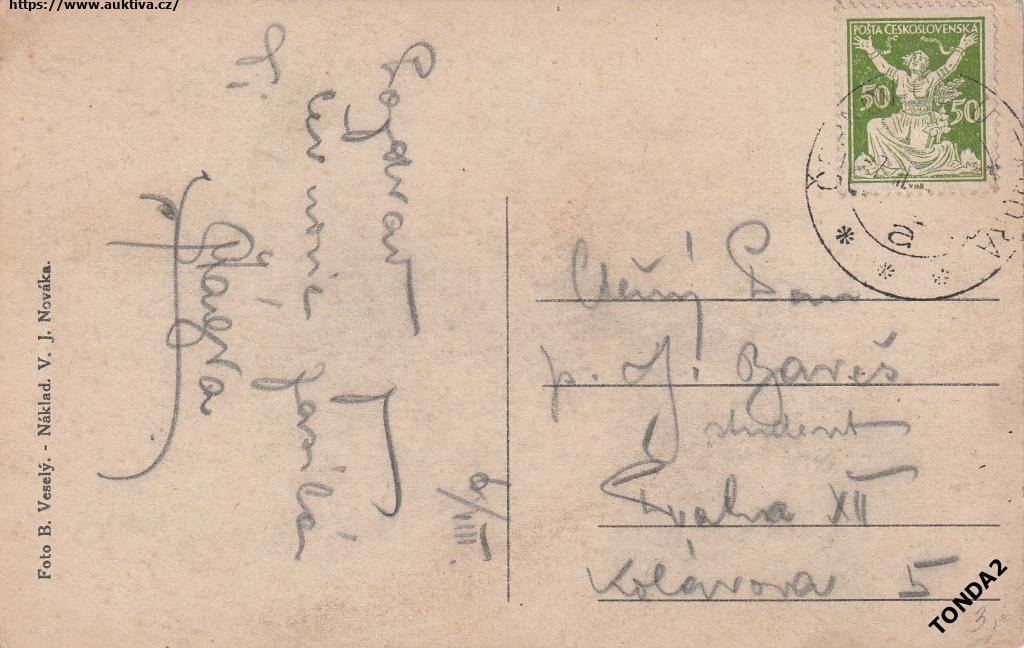 https://www.auktiva.cz/
POŠTA ČESKOSLOVENSKÁ
50 50
Pozdrav
posílá
6/VIII.
Ctěný Pan
p. J. Bareš
student
Praha XII
Kolárova 5
Foto B. Veselý. - Náklad. V. J. Nováka.
TONDA2